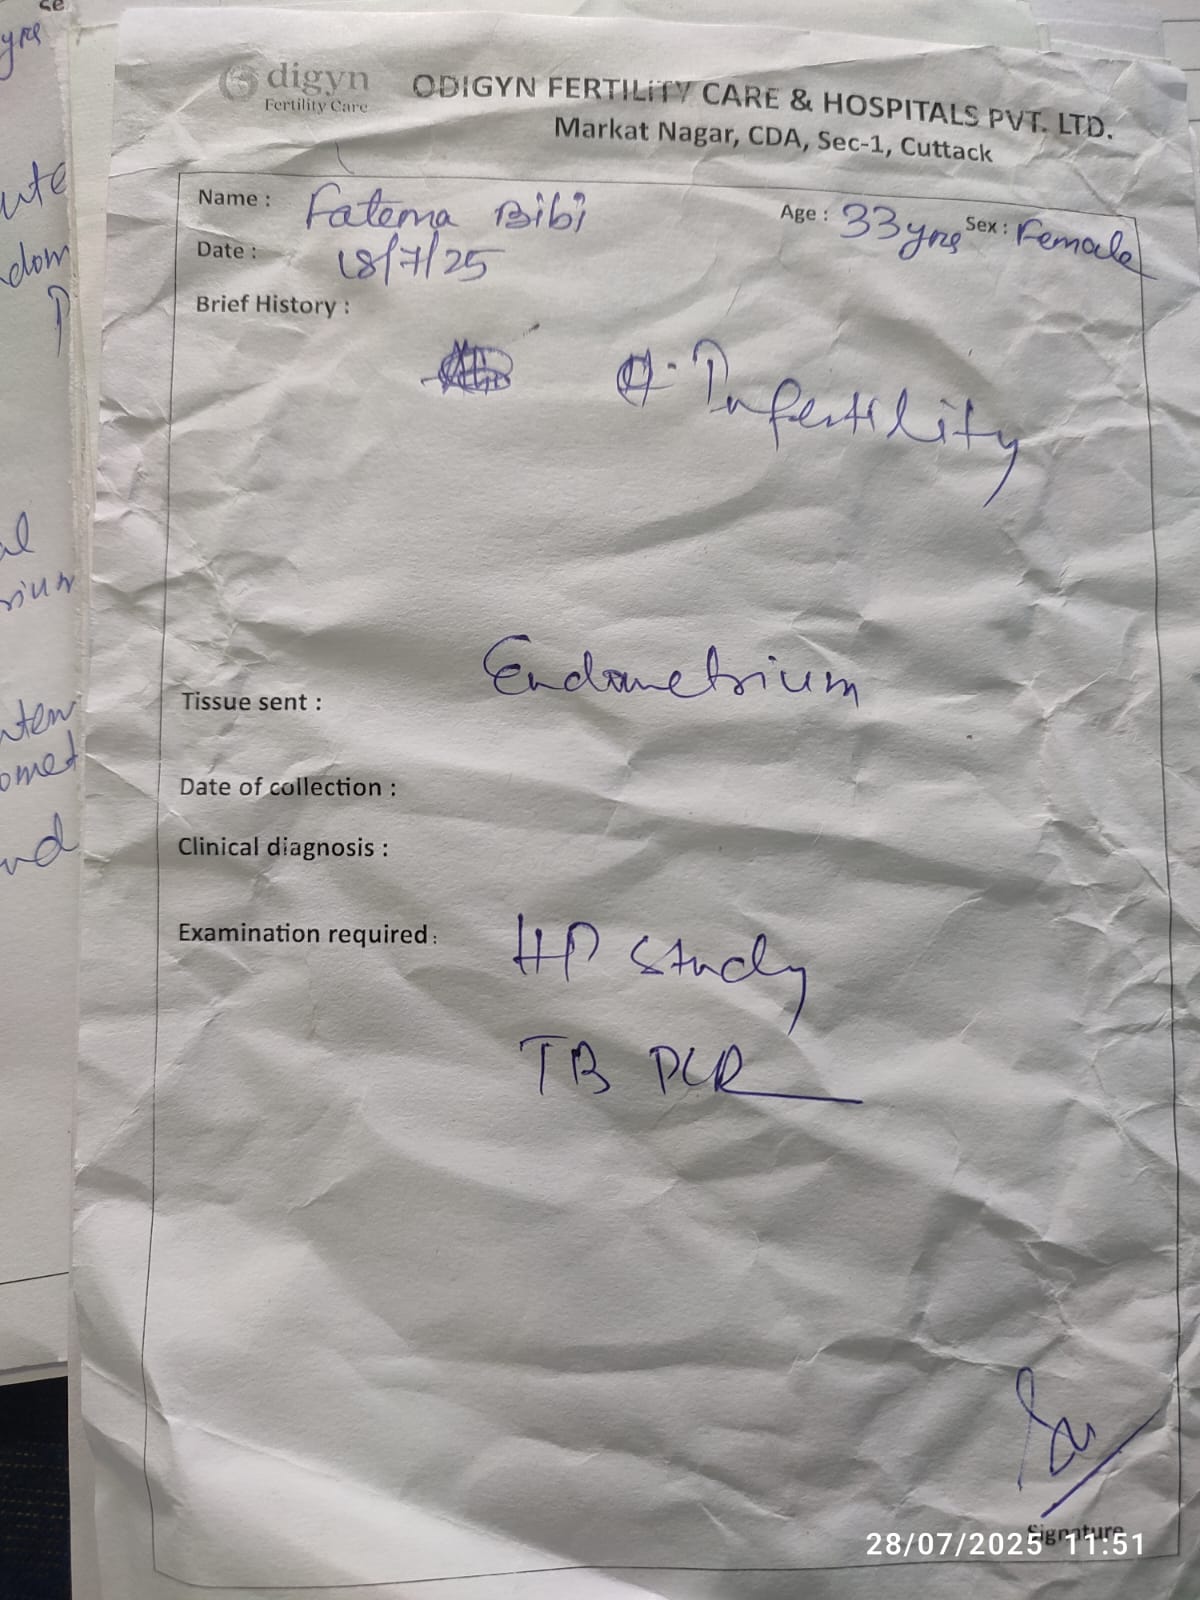 digyn
Fertility Care
ODIGYN FERTILITY CARE & HOSPITALS PVT. LTD.
Markat Nagar, CDA, Sec-1, Cuttack
Name : Fatema Bibi Age : 33yrs Sex : Female
Date : 18/7/25
Brief History :
Infertility
Tissue sent : Endometrium
Date of collection :
Clinical diagnosis :
Examination required : HP study
TB PCR
Signature
28/07/2025 11:51